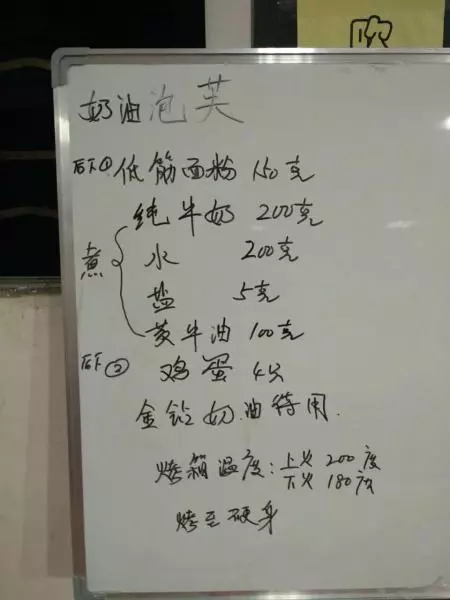 欧
奶油泡芙
后下① 低筋面粉 150克
纯牛奶 200克
煮 水 200克
盐 5克
黄牛油 100克
后下② 鸡蛋 4只
金钻奶油待用.
烤箱温度: 上火 200度
下火 180度
烤至硬身